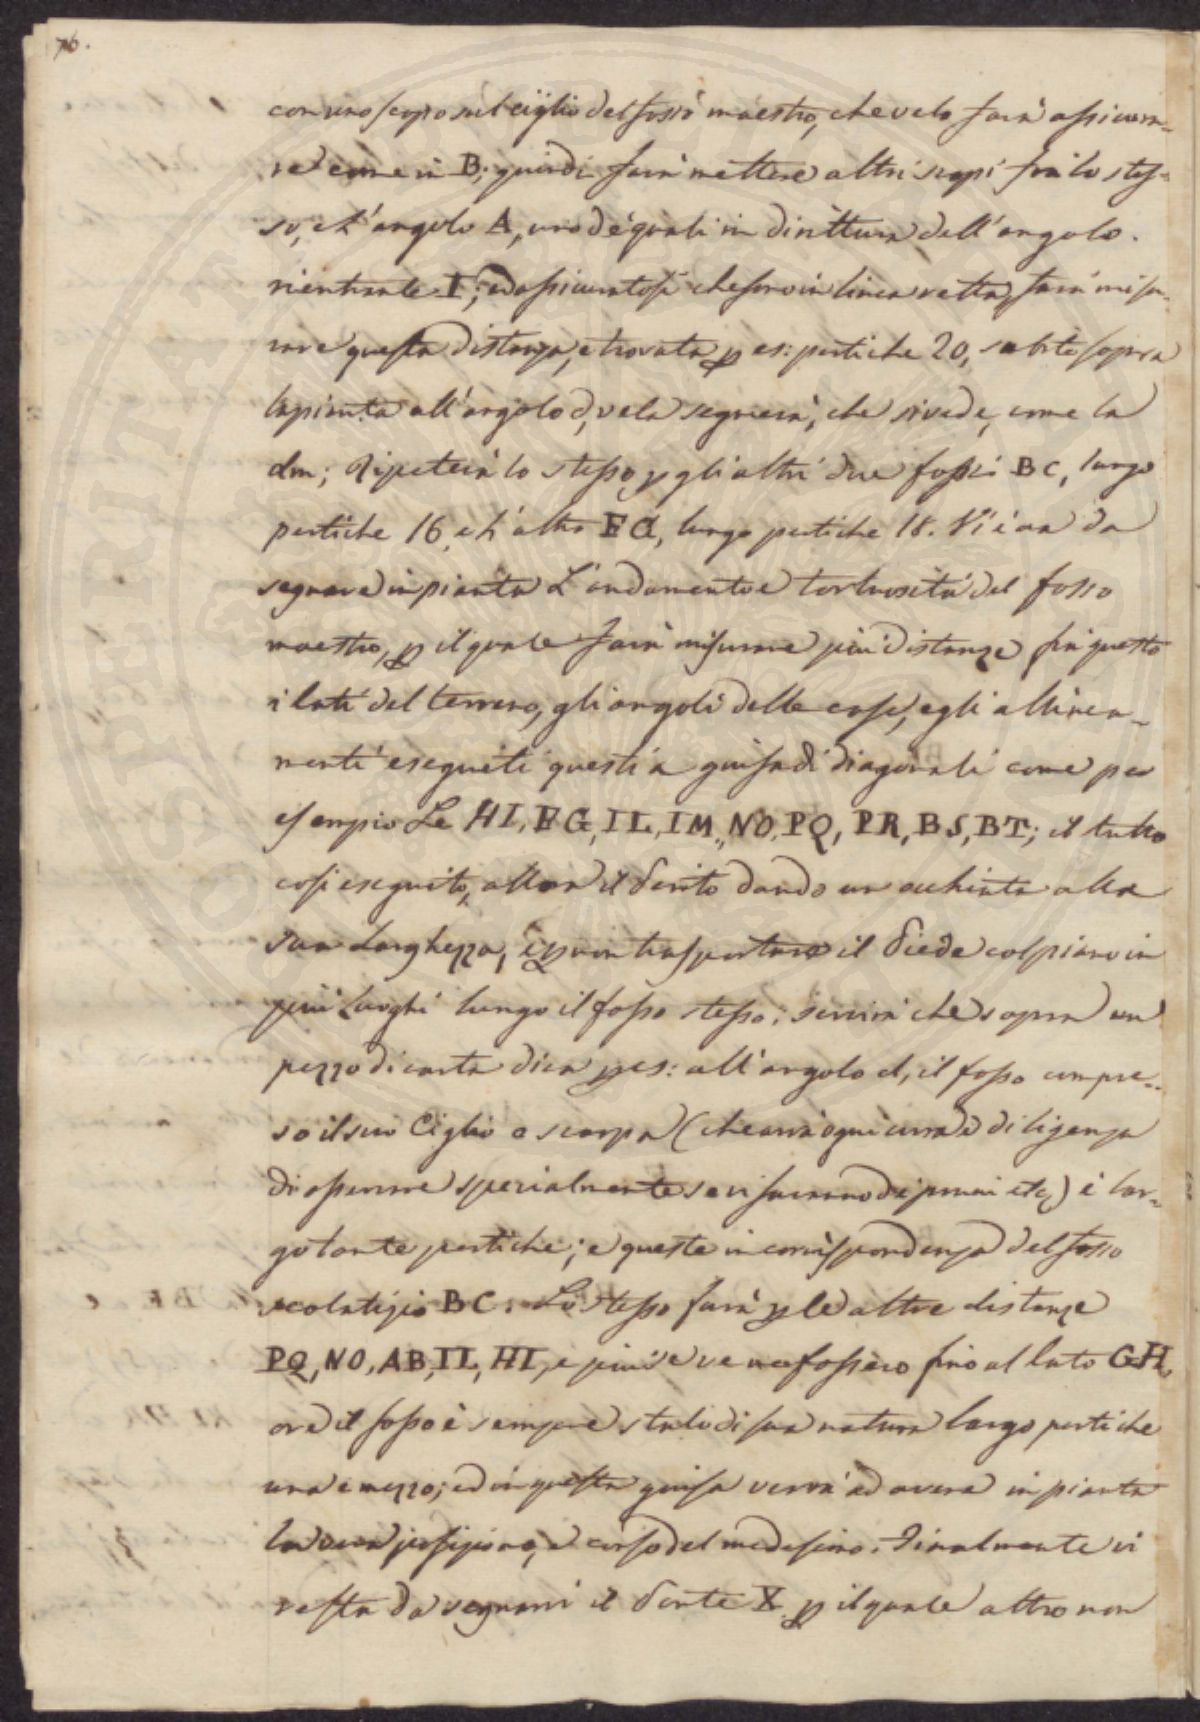 76.
con uno scopo sul ciglio del fosso maestro, che velo farà assicura-
re come in B; quindi farà mettere altri scopi frà lo stes-
so, e l'angolo A, uno de' quali in dirittura dell'angolo
rientrante I; ed assicuratosi che sono in linea retta, farà misu-
rare questa distanza, e trovata p es: pertiche 20, subito sopra
la pianta all'angolo d, vela segnerà, che si vede, come la
dm; Ripeterà lo stesso p gli altri due fossi BC, lungo
pertiche 16, e l'altro EQ, lungo pertiche 18. Vi è ora da
segnare in pianta L'andamento e tortuosità del fosso
maestro, p il quale farà misurare più distanze frà questo
i lati del terreno, gli angoli delle case, e gli allinea-
menti eseguiti questi a guisa di diagonali come per
esempio Le HI, FG, IL, IM, NO, PQ, PR, BS, BT; il tutto
così eseguito, allora il Perito dando un occhiata alla
sua Larghezza, e p non trasportare il Piede col piano in
più Luoghi lungo il fosso stesso; servirà che sopra un
pezzo di carta dica p es: all'angolo d, il fosso compre-
so il suo Ciglio o scarpa (che avrà ogni cura e diligenza
di osservare specialmente se vi saranno de' pruni etc) è lar-
go tante pertiche; e queste in corrispondenza del fosso
scolatizio BC. Lo stesso farà p le altre distanze
PQ, NO, AB, IL, HI, e più se ve ne fossero fino al lato GH,
ove il fosso è sempre stato di sua natura largo pertiche
una e mezzo; ed in questa guisa verrà ad avere in pianta
la vera posizione, e corso del medesimo. Finalmente vi
resta da segnarsi il Ponte X p il quale altro non